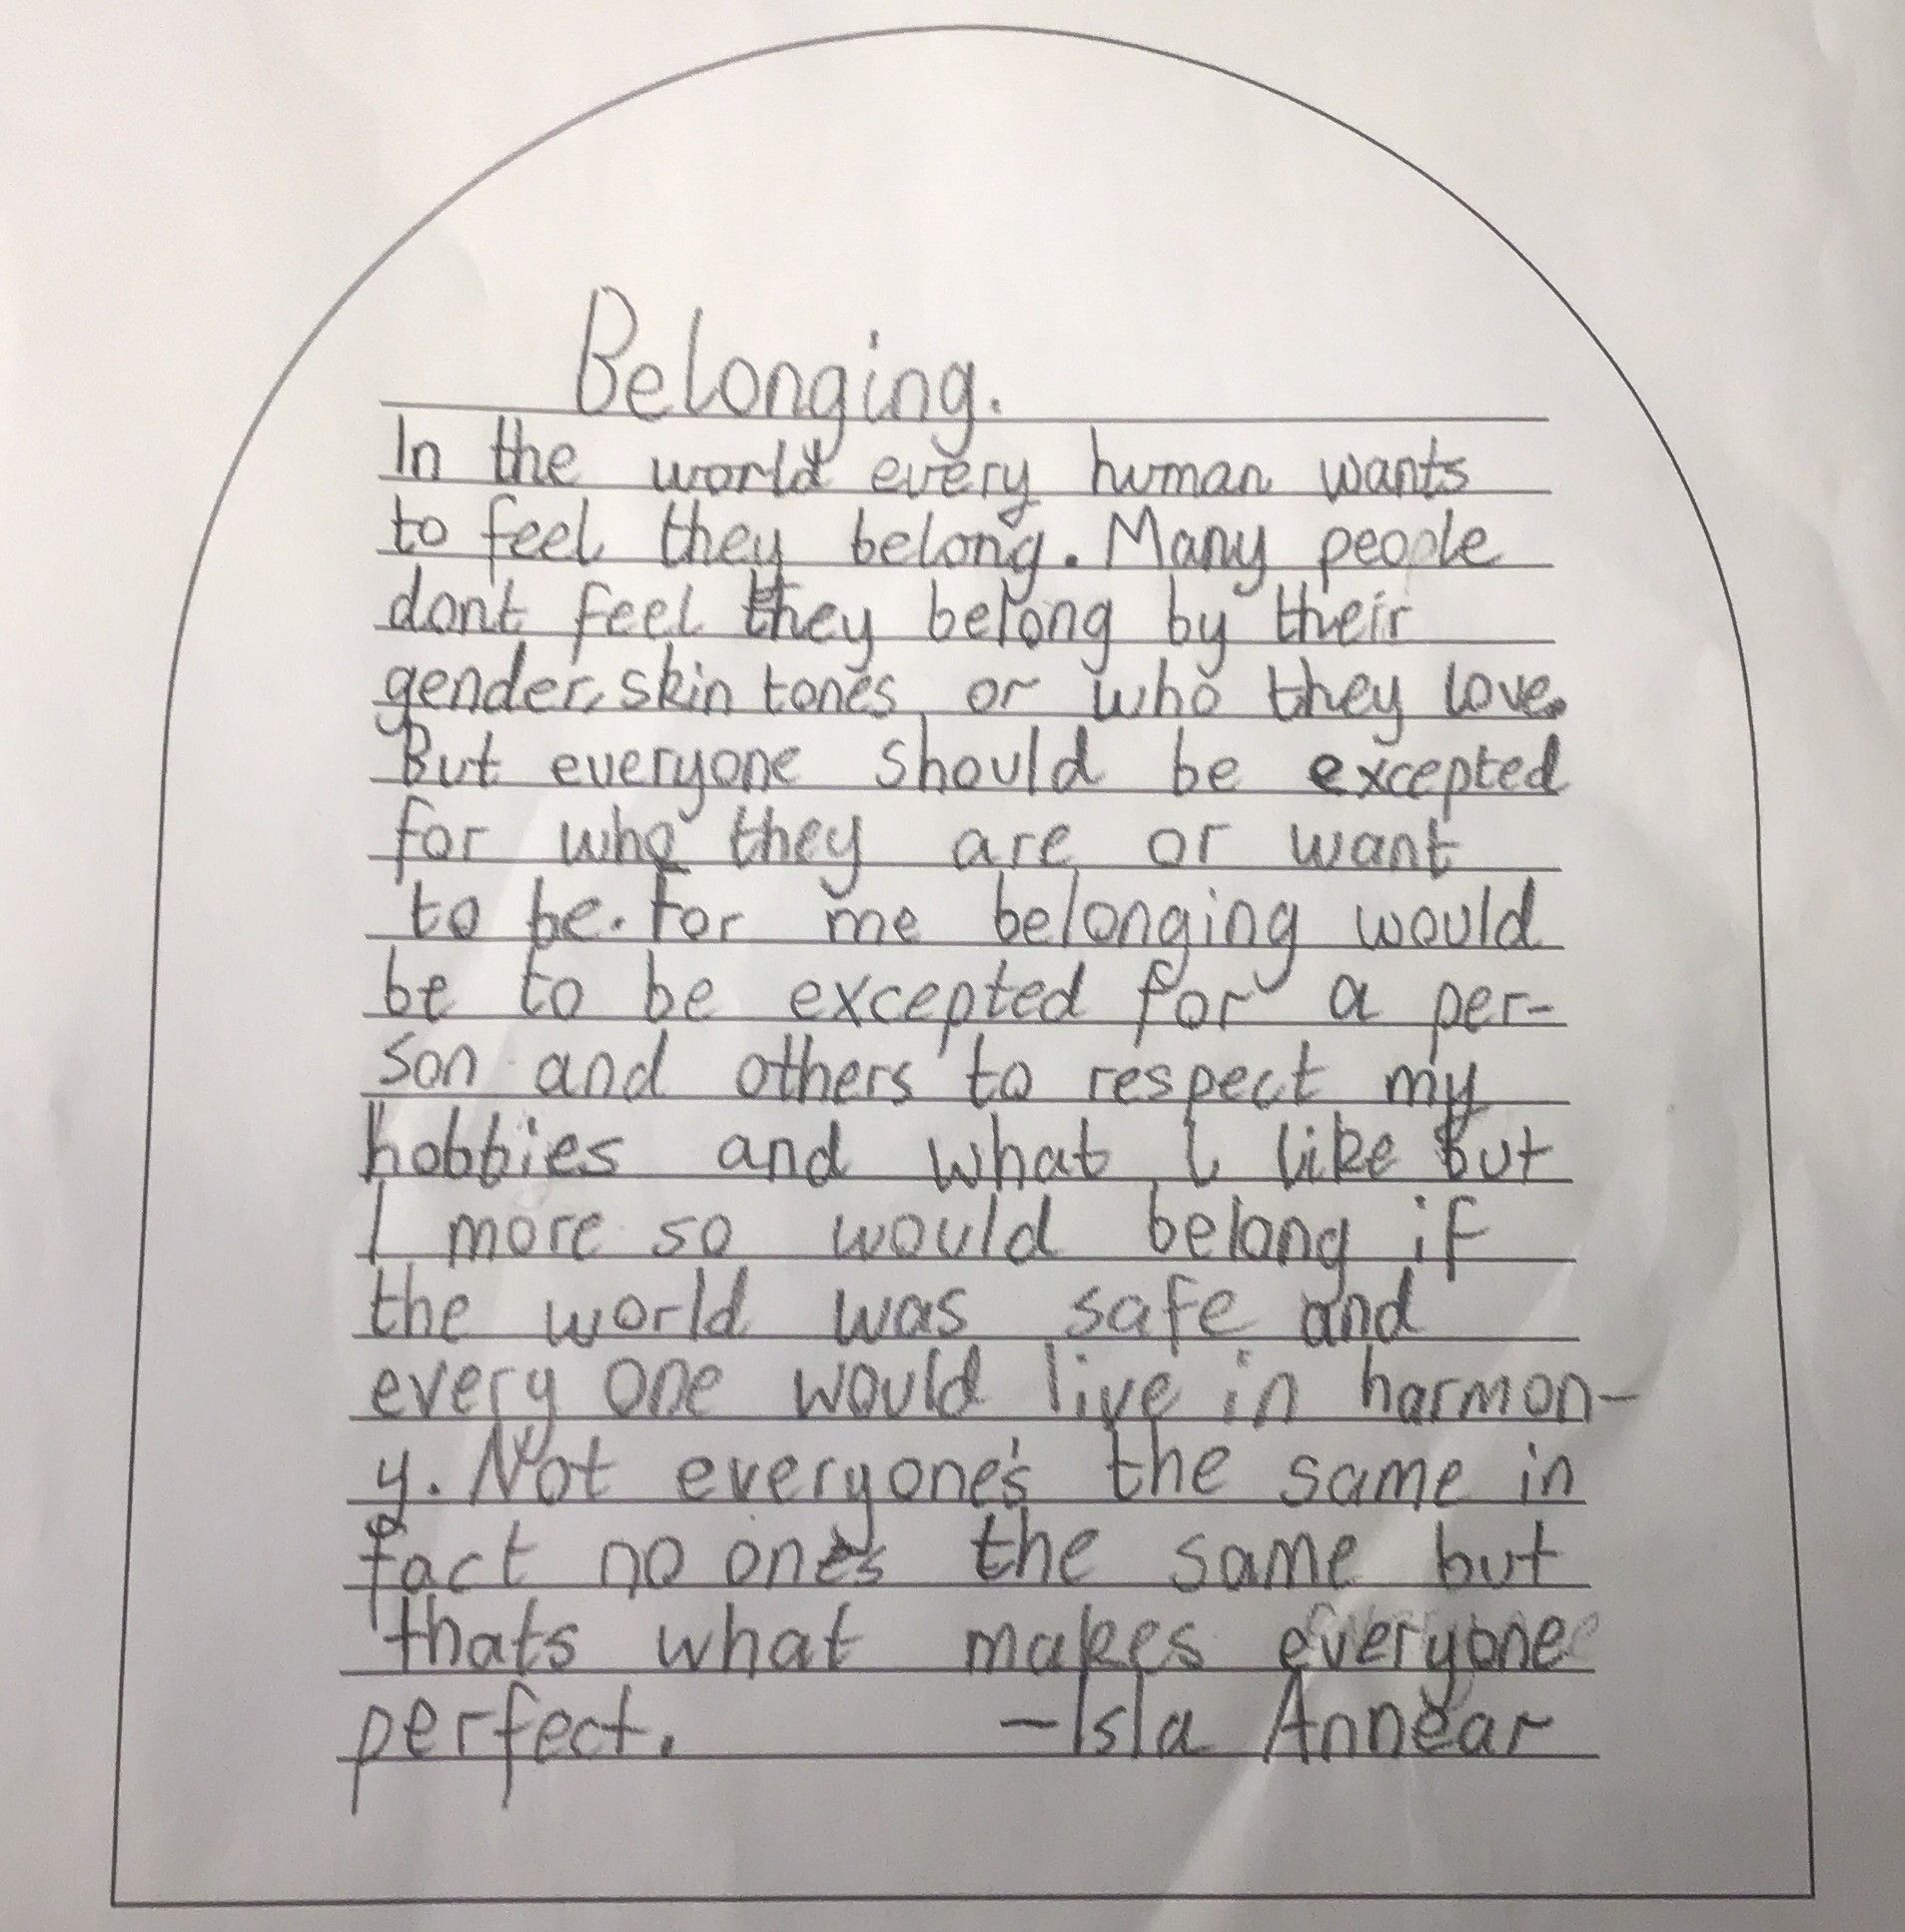 Belonging.
In the world every human wants
to feel they belong. Many people
dont feel they belong by their
gender, skin tones or who they love.
But everyone should be excepted
for who they are or want
to be. For me belonging would
be to be excepted for a per-
son and others to respect my
hobbies and what I like but
I more so would belong if
the world was safe and
every one would live in harmon-
y. Not everyone's the same in
fact no one's the same but
thats what makes everyone
perfect. -Isla Annear